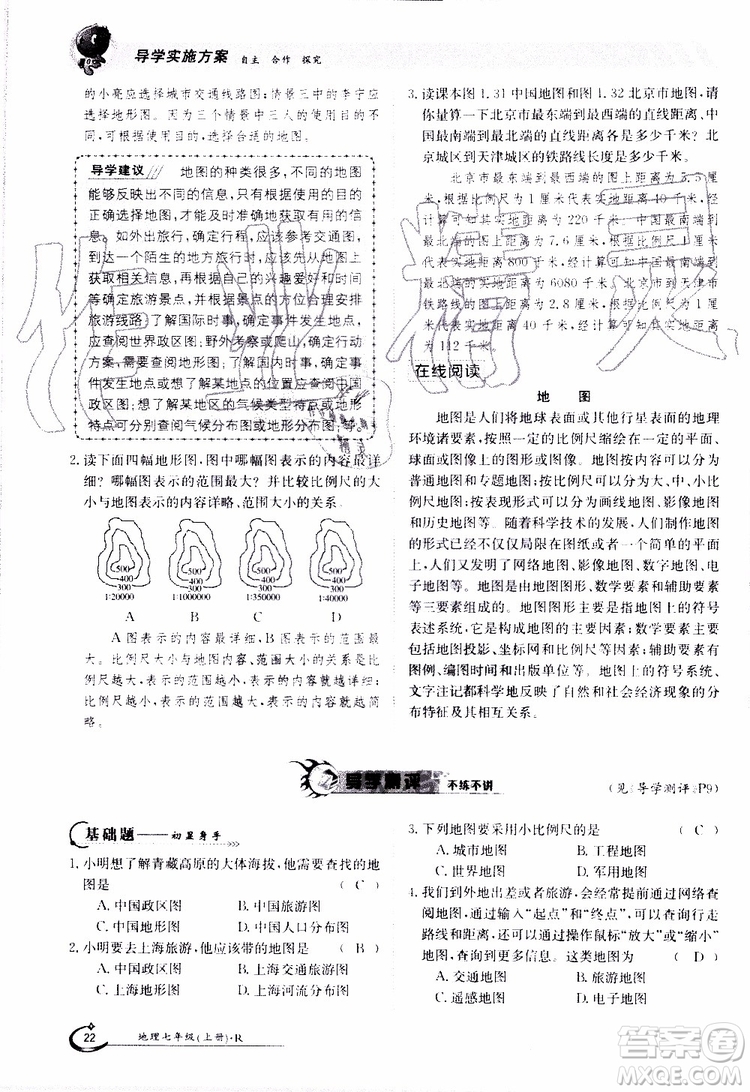 导学实施方案 自主 合作 探究
的小亮应选择城市交通线路图;情景三中的李宇应
选择地形图。因为三个人对地图信息的需求不
同,可根据需求,选择合适的地图。
导学建议 地图的种类很多,不同的地图
能够反映出不同的信息,要根据需要,正确地
选择地图。外出旅行,确定行程,应该参考交通图,
到达一个陌生的地方旅行时,应该先查阅地图,
获取相关信息,再根据自己的兴趣爱好和时
间,确定旅游景点,并根据景点的方位合理安排
旅游线路;了解国际时事,确定事件发生地点,
应查阅世界政区图;野外考察或爬山,确定行动
方案,需要查阅地形图;了解某地区的地形特
点,查阅地形图;想了解某地的位置应查阅中国
政区图;想了解某地区的气候类型特点或特
点可分别查阅气候分布图、旅游图等。
2. 读下面四幅地形图,图中哪幅图表示的内容最详
细?哪幅图表示的范围最大?并比较比例尺的大
小与表示的内容详略、范围大小的关系。
500 400 300 500 400 300 500 400 300 500 400 300
1:20000 1:1000000 1:350000 1:40000
A B C D
A图表示的内容最详细,B图表示的范围最
大。比例尺越大,表示的内容就越详细;比例
尺越小,表示的范围越大,表示的内容就越简
略。
3. 读课本图 1.31 中国地图和图 1.32 北京市地图,请
你量算一下北京市最东端到最西端的直线距离、
中国最南端到最北端的直线距离各是多少千米?
北京城区到天津城区的铁路线长度是多少千米?
北京市最东端到最西端的图上距离为
厘米,图上距离1厘米代表实地距离40千米,因
此实地直线距离为220千米;中国最南端
到最北端的图上距离为7.6厘米,图上距离1厘米
代表实地距离800千米,因此中国最南端到最北
端的直线距离为6080千米;北京市到天津市
铁路线的图上距离为2.8厘米,图上距离1厘米
代表实地距离40千米,因此实地距离约
为112千米。
在线阅读
地 图
地图是人们将地球表面或其他行星表面的地理
环境诸要素,按照一定的比例尺缩绘在一定的平面、
球面或立体模型上的图形。地图按照内容可以分为
普通地图和专题地图,按照形式可以分为画线地图、
影像地图、数字地图和电子地图,按照时间可分为古地图
和历史地图等。随着科学技术的发展,人们制作地图
的形式已经不仅局限在图纸或者一个简单的平面、
立体模型上,又发明了网络地图、影像地图、数字地图、电
子地图等。地图是由地图图形、数学要素和辅助要素
等三要素组成的。地图图形指的是地图上的符号
表述系统,它是构成地图的主要部分;数学要素主要
包括地图投影、坐标网和比例尺等;辅助要素主要有
图例、编图时间和出版单位等。地图的符号系统、
文字注记都科学地反映了自然和社会经济现象的分
布特征及其相互关系。
导学测评 不练不讲 (见《导学测评》P9)
基础题——初显身手
1. 小明想了解青藏高原的大体海拔,他需要的地
图是 ( C )
A. 中国政区图 B. 中国旅游图
C. 中国地形图 D. 中国人口分布图
2. 小明要去上海旅游,他应该带的地图是 ( B )
A. 中国政区图 B. 上海交通旅游图
C. 上海地形图 D. 上海河流分布图
3. 下列地图要采用小比例尺的是 ( C )
A. 城市地图 B. 工程地图
C. 世界地图 D. 军用地图
4. 我们到外地出差或者旅游,会经常提前上网查
阅地图,并通过输入“起点”和“终点”,可以查询走
行路线和距离;还可通过操作鼠标“放大”或“缩小”
地图,查询到更多的内容。这类地图为 ( D )
A. 交通地图 B. 政区图
C. 遥感地图 D. 电子地图
22 地理七年级(上册)·R
作业精灵